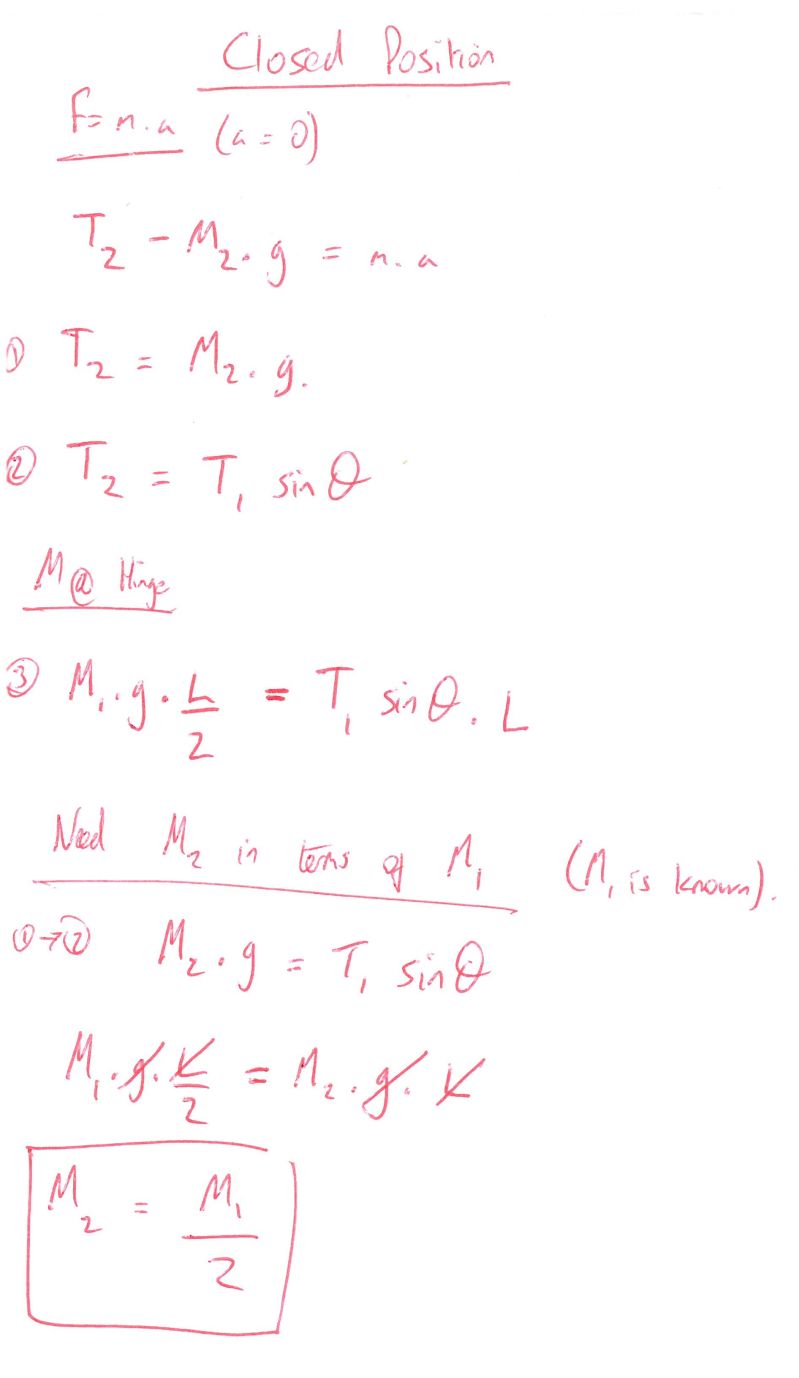 Closed Position
F = m.a (a = 0)
T₂ - M₂.g = m.a
① T₂ = M₂.g.
② T₂ = T₁ sinθ
M@ Hinge
③ M₁.g.L/2 = T₁ sinθ.L
Need M₂ in terms of M₁ (M₁ is known).
①→② M₂.g = T₁ sinθ
M₁.g.L/2 = M₂.g.L
M₂ = M₁/2